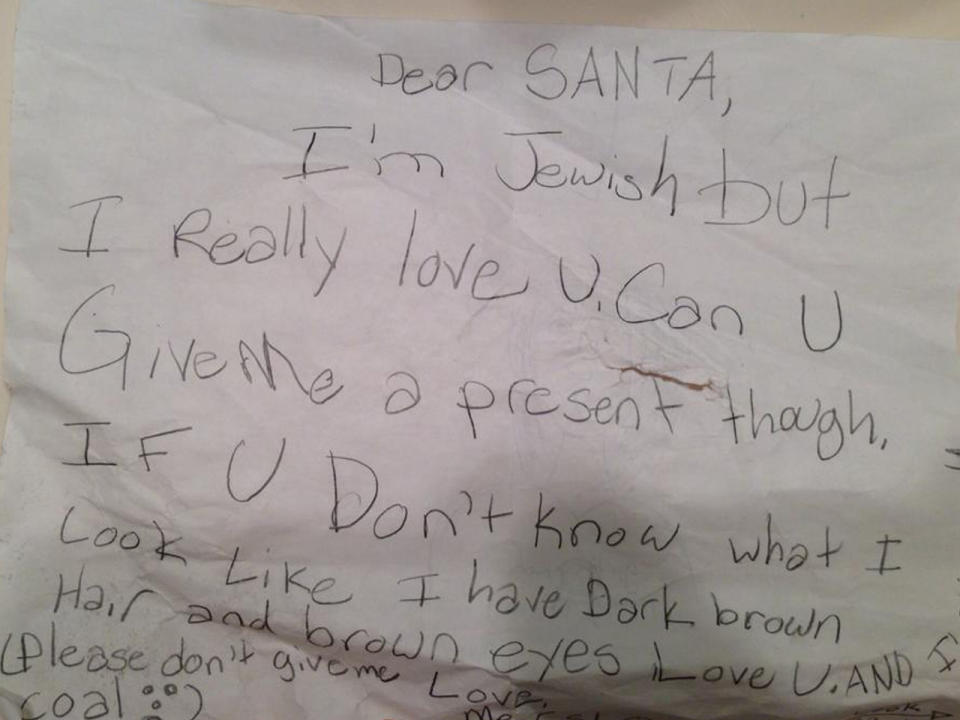 Dear SANTA,
I'm Jewish but
I Really love U. Can U
Give Me a present though,
IF U Don't know what I
Look Like I have Dark brown
Hair and brown eyes I Love U. AND I
(Please don't give me
coal :))
Love,